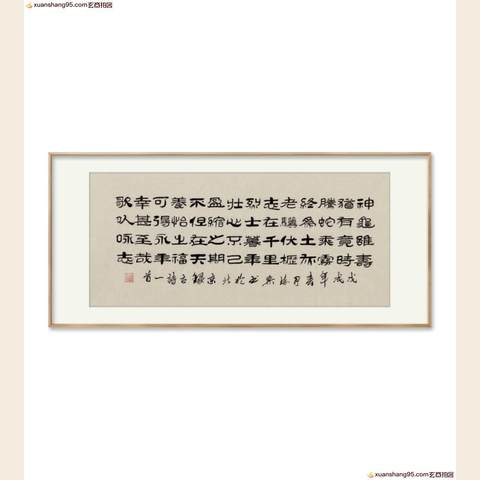 xuanshang95.com玄商拍图
神龜雖壽
猶有竟時
騰蛇乘霧
終為土灰
老驥伏櫪
志在千里
烈士暮年
壯心不已
盈縮之期
不但在天
養怡之福
可得永年
幸甚至哉
歌以咏志
戊戌年春月書於北京錄古詩一首
xuanshang95.com玄商拍图